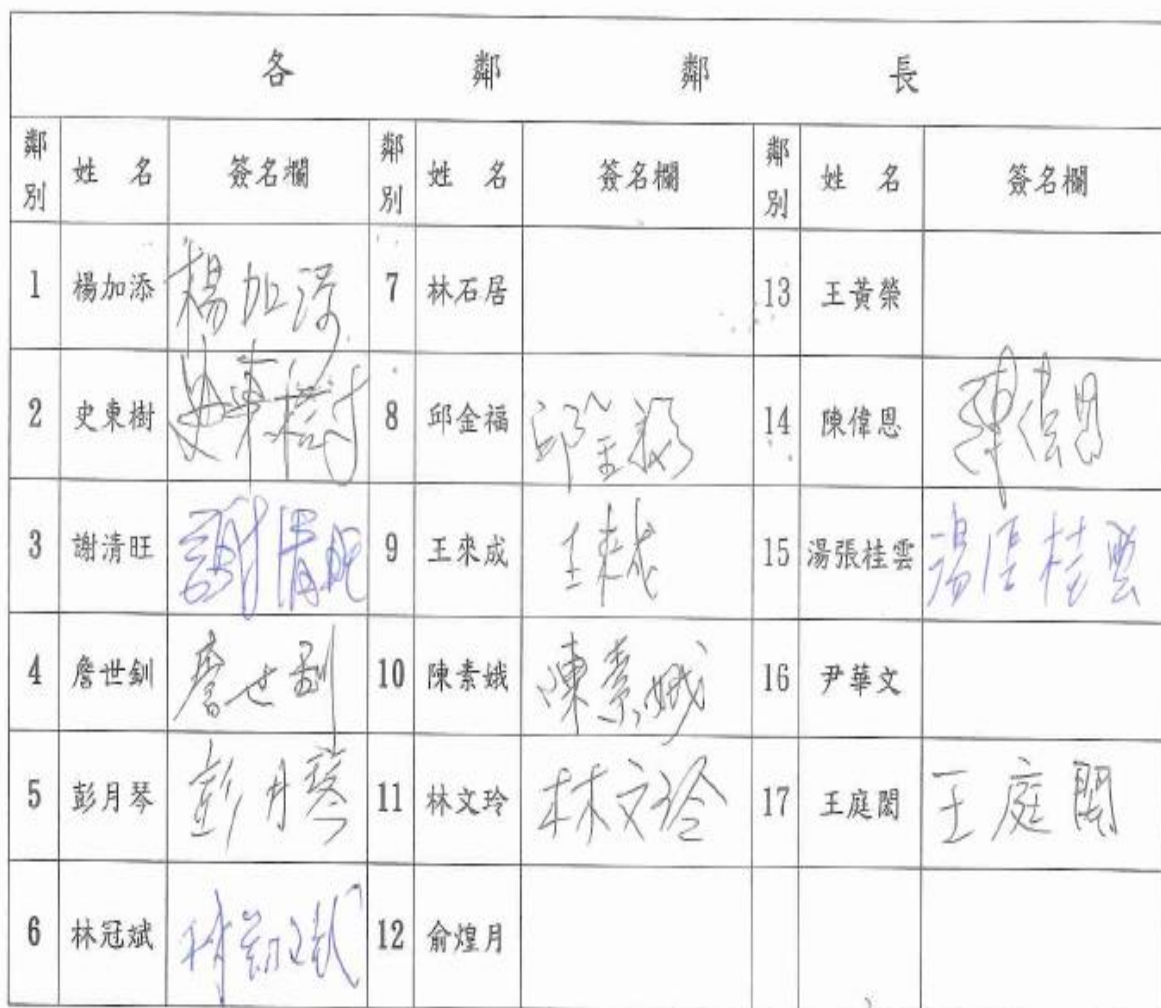 各鄰鄰長
鄰別 姓名 簽名欄 鄰別 姓名 簽名欄 鄰別 姓名 簽名欄
1 楊加添 楊加添 7 林石居 13 王黃榮
2 史東樹 史東樹 8 邱金福 邱金福 14 陳偉恩 陳偉恩
3 謝清旺 謝清旺 9 王來成 王來成 15 湯張桂雲 湯張桂雲
4 詹世釧 詹世釧 10 陳素娥 陳素娥 16 尹華文
5 彭月琴 彭月琴 11 林文玲 林文玲 17 王庭閣 王庭閣
6 林冠斌 林冠斌 12 俞煌月